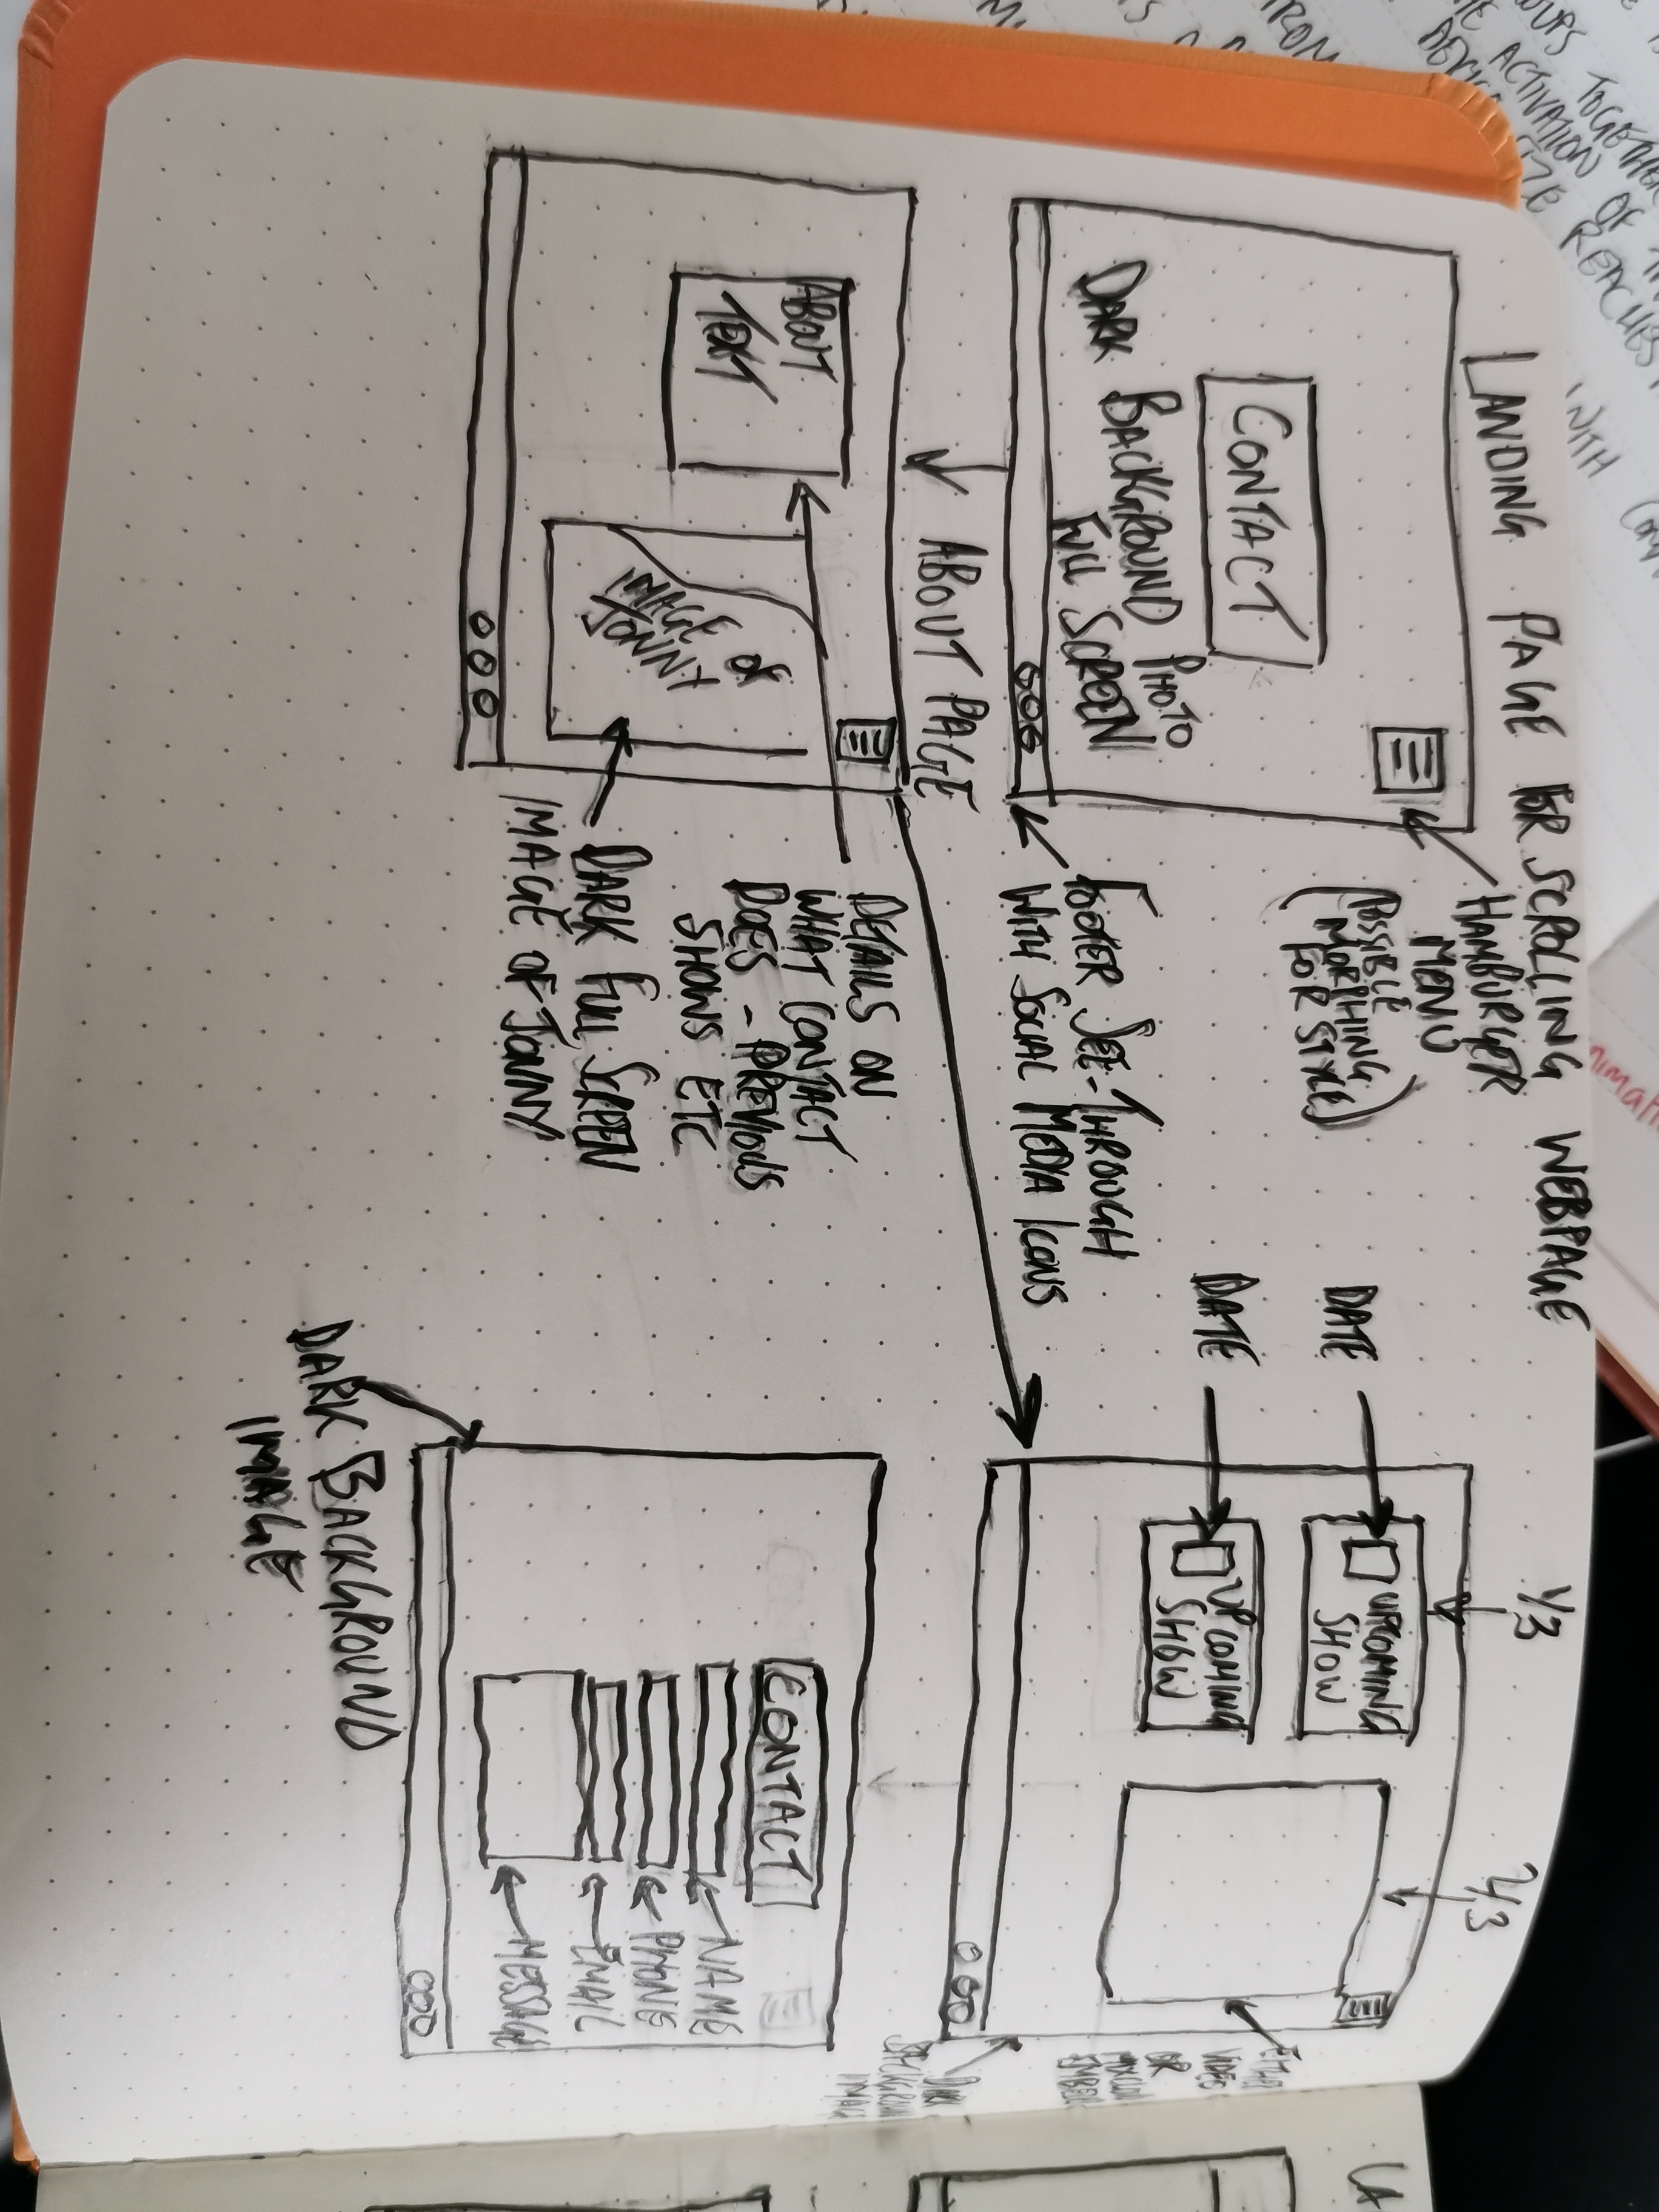 LANDING PAGE FOR SCROLLING WEBPAGE
HAMBURGER
MENU
(POSSIBLE
MORPHING
FOR STYLE)
CONTACT
DARK BACKGROUND PHOTO
FULL SCREEN
FOOTER SEE-THROUGH
WITH SOCIAL MEDIA ICONS
ABOUT PAGE
ABOUT
TEXT
IMAGE OF
JONNY
DETAILS ON
WHAT CONTACT
DOES - PREVIOUS
SHOWS ETC
DARK FULL SCREEN
IMAGE OF JONNY
1/3
2/3
DATE
UPCOMING
SHOW
DATE
UPCOMING
SHOW
EITHER
VIDEO
OR
DARK
BACKGROUND
IMAGE
CONTACT
NAME
PHONE
EMAIL
MESSAGE
DARK BACKGROUND
IMAGE
TOGETHER
ACTIVATION OF
SIZE REACHES
WITH